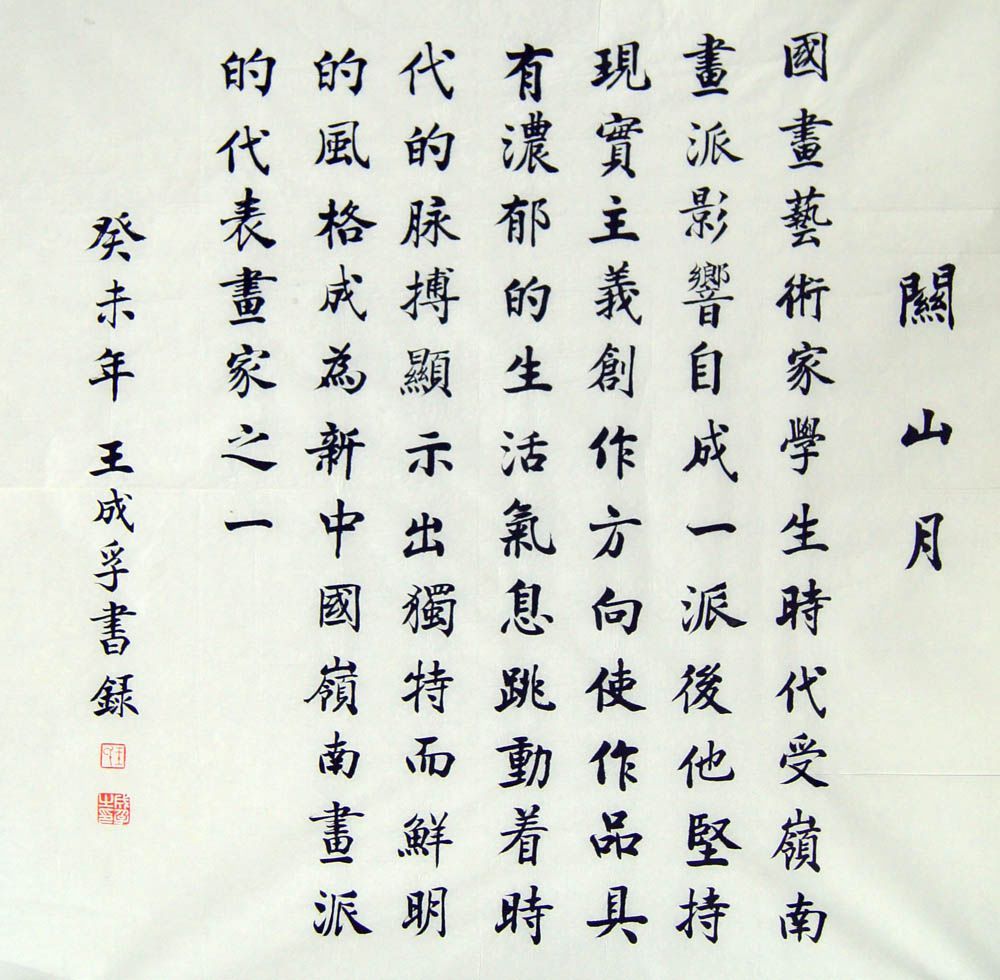 關山月
國畫藝術家學生時代受嶺南
畫派影響自成一派後他堅持
現實主義創作方向使作品具
有濃郁的生活氣息跳動着時
代的脉搏顯示出獨特而鮮明
的風格成為新中國嶺南畫派
的代表畫家之一
癸未年 王成孚書録